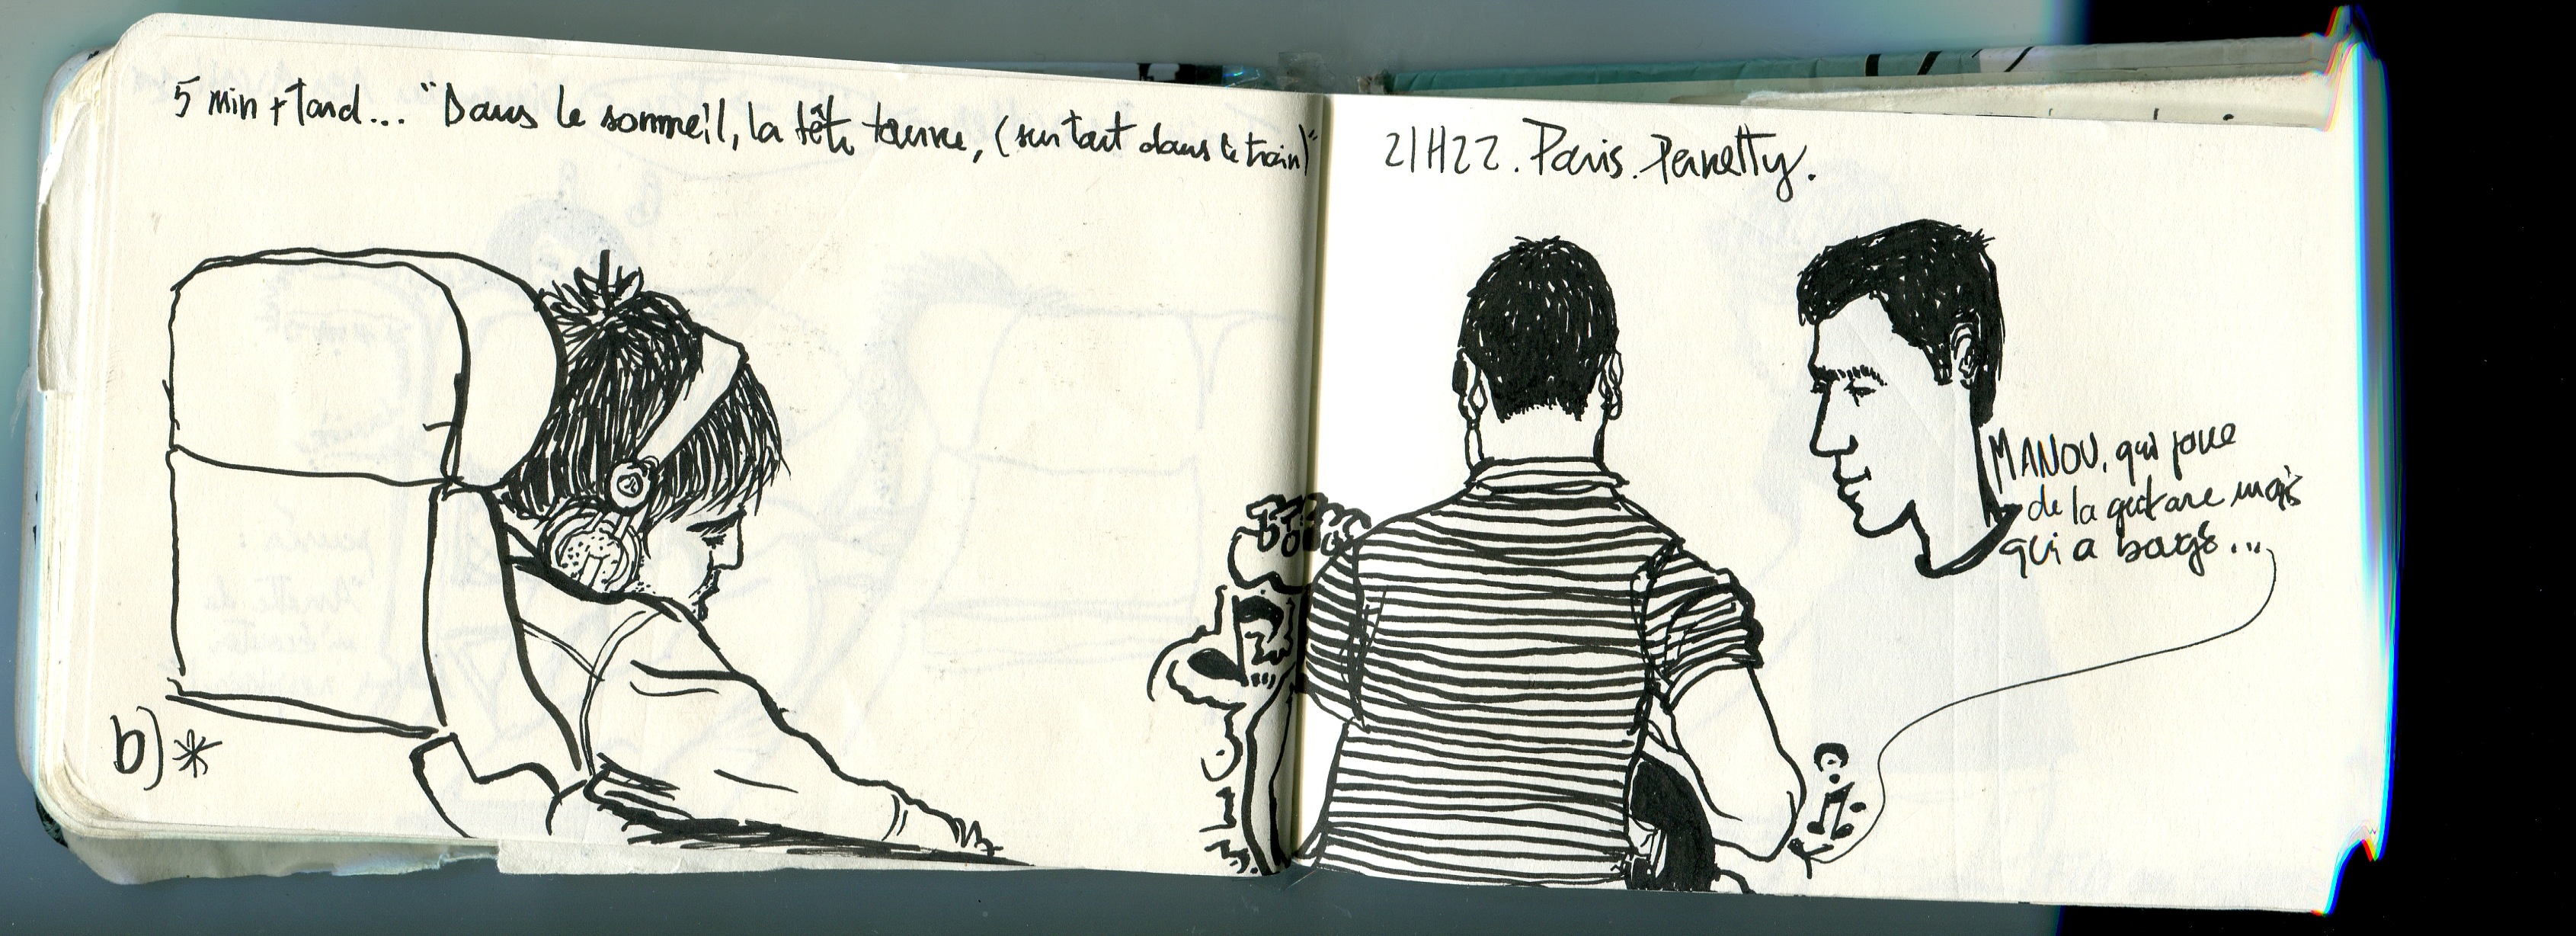 5 min + tard... "Dans le sommeil, la tête tourne, (surtout dans le train)"
21H22. Paris. Pernetty.
MANOU, qui joue
de la guitare mais
qui a bougé...
b) *